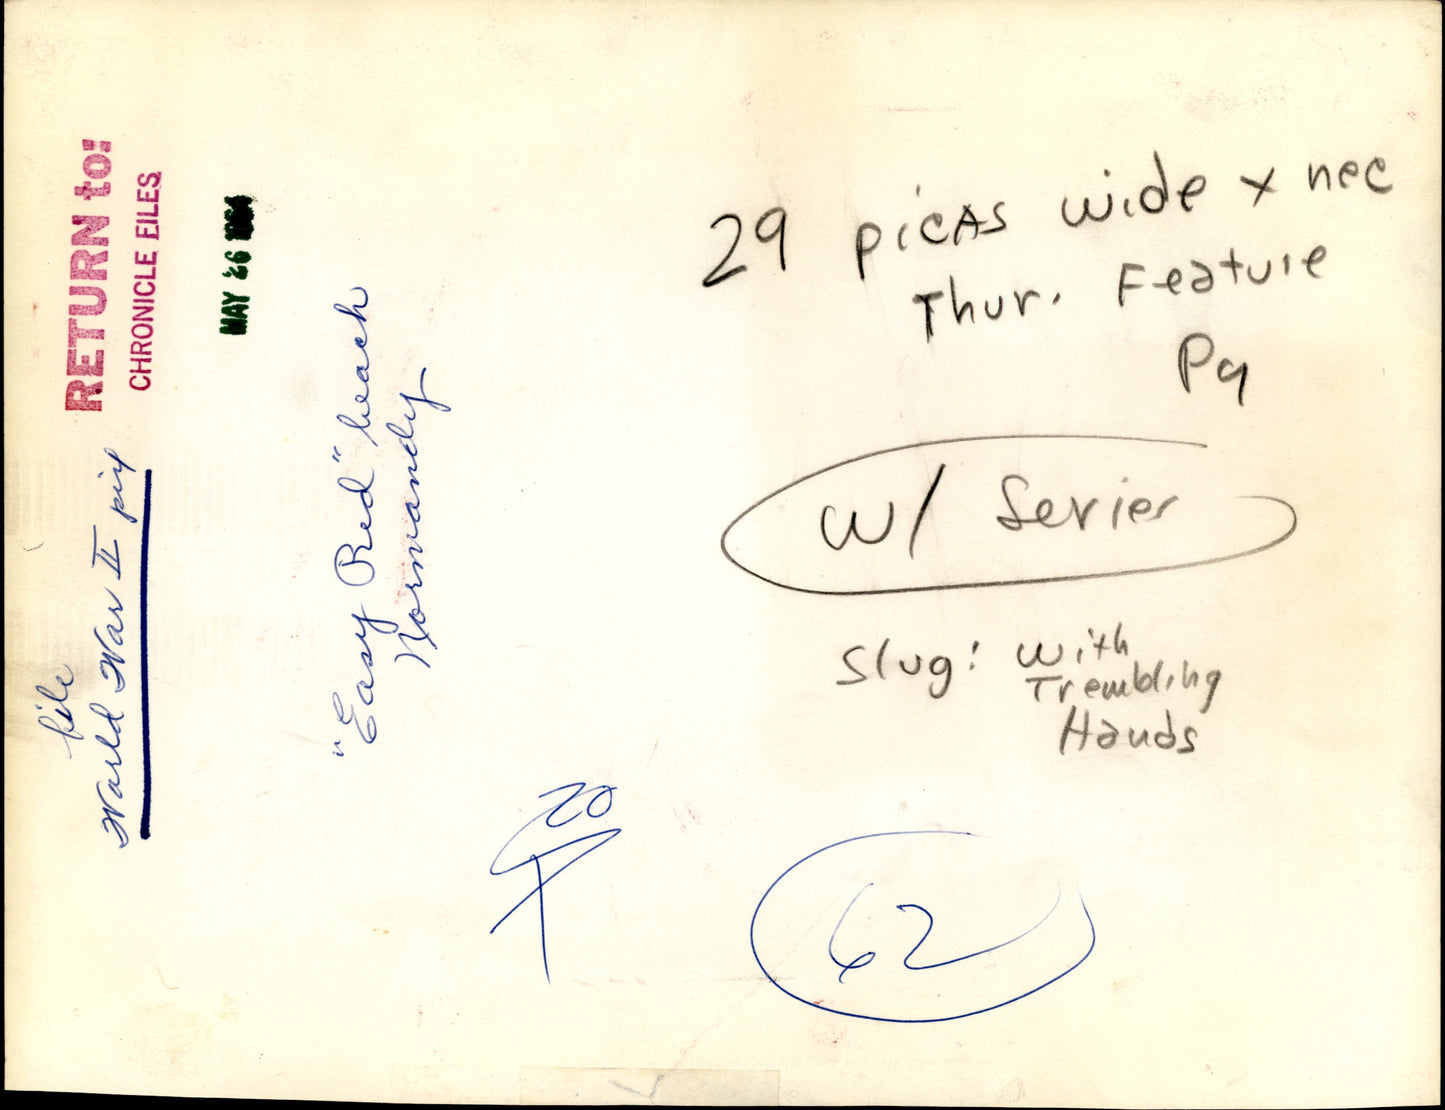 RETURN to:
CHRONICLE FILES
MAY 26
file
World War II pix
"Easy Red" beach
Normandy
29 picas wide x nec
Thur. Feature
Pg
w/ Series
Slug: With
Trembling
Hands
20
62